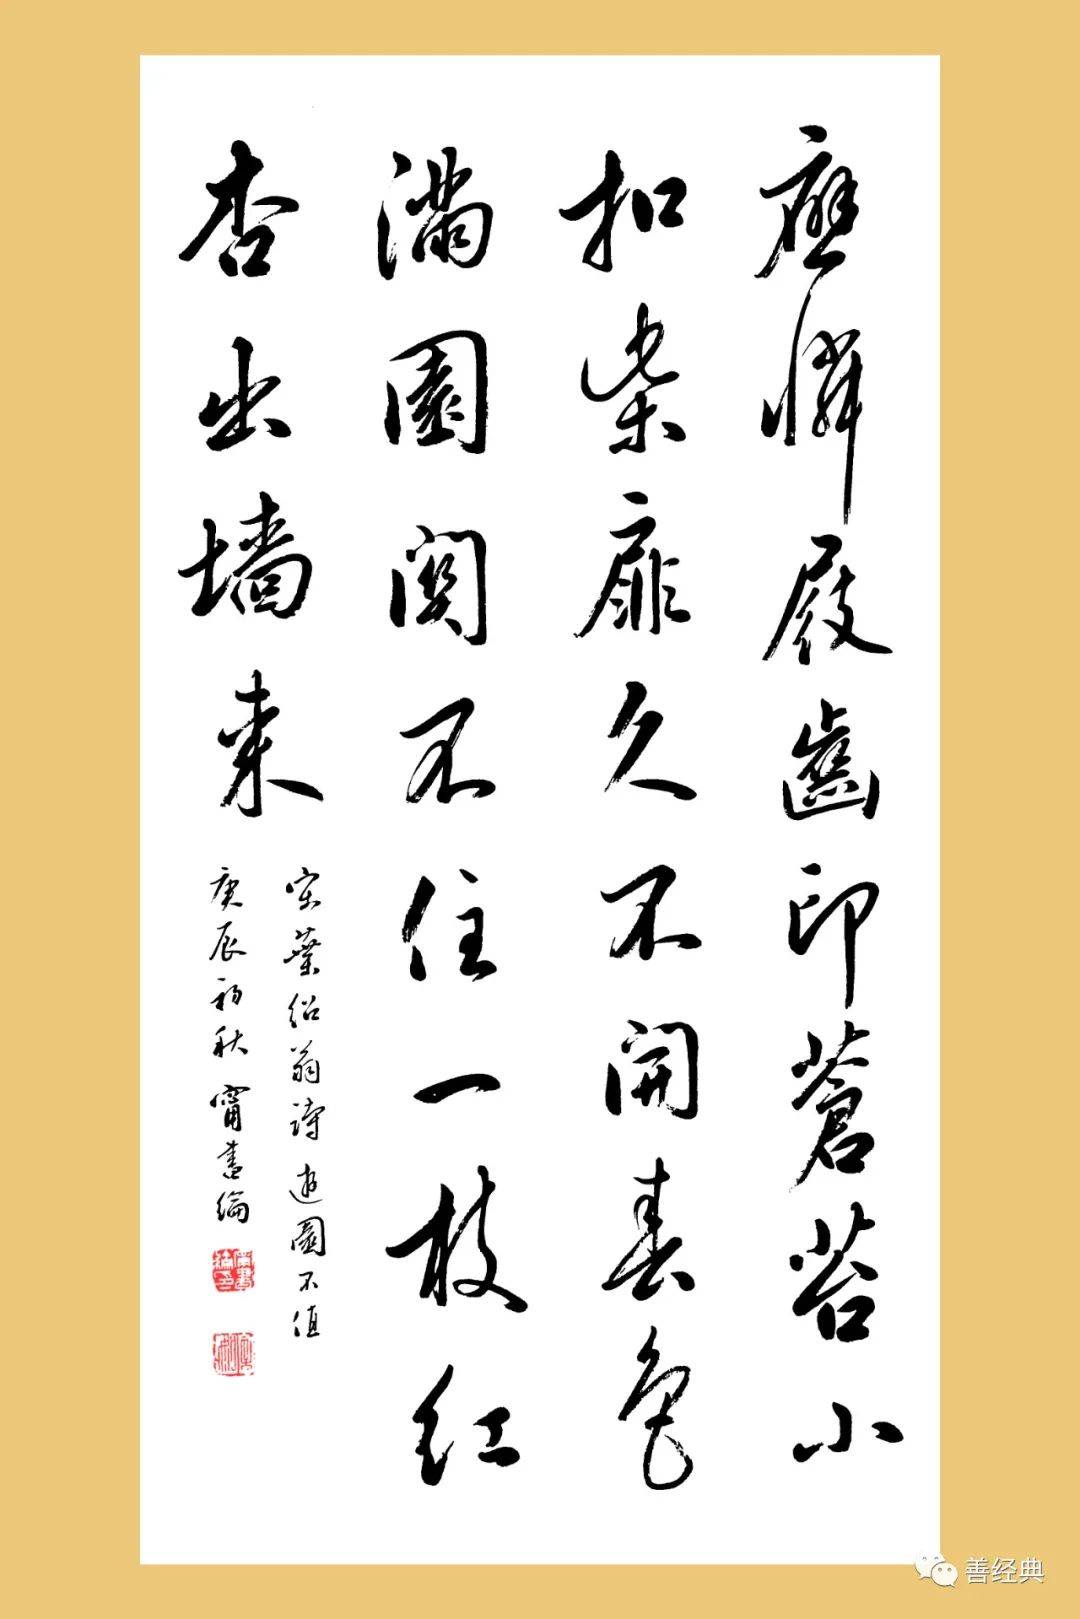 應憐屐齒印蒼苔小
扣柴扉久不開春色
滿園関不住一枝红
杏出墙来
宋葉绍翁詩遊園不值
庚辰初秋甯書綸
善经典